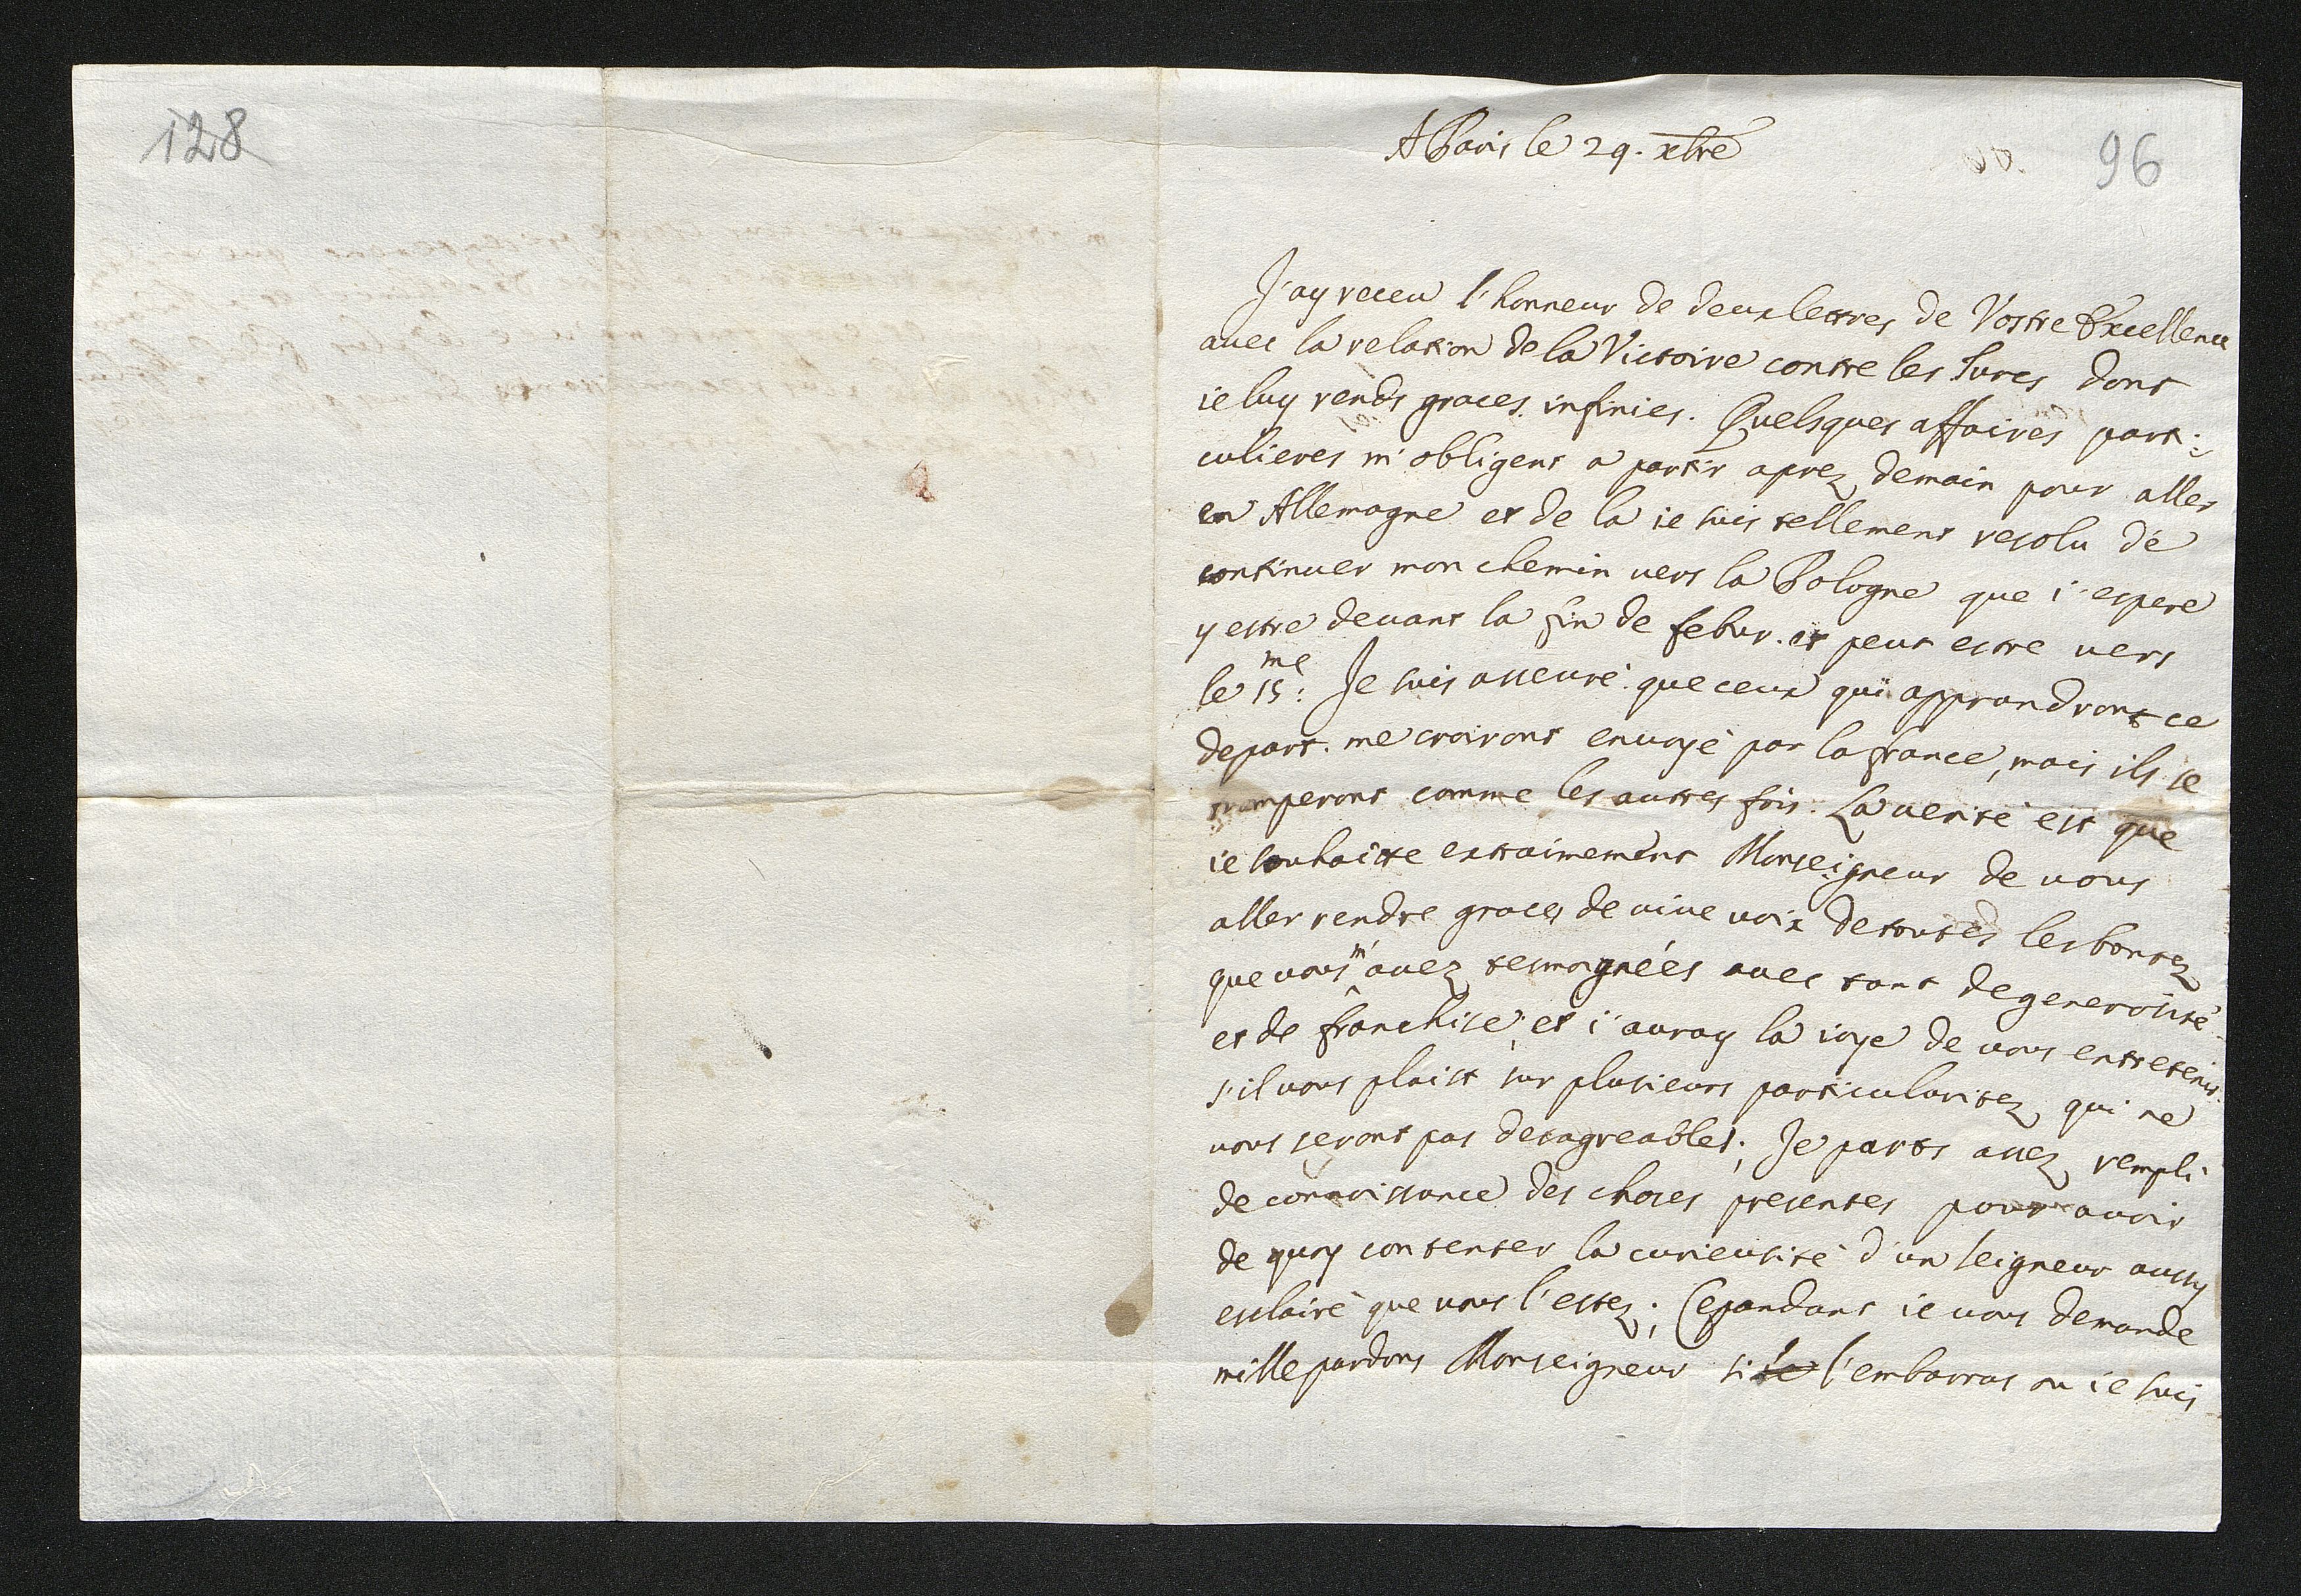 128
A Paris le 29. xbre
96
J'ay receu l'honneur de deux lettres de Vostre Excellence
avec la relation de la Victoire contre les Turcs dont
ie luy rends graces infinies. Quelsques affaires parti:
culieres m'obligent a partir aprez demain pour aller
en Allemagne et de la ie suis tellement resolu de
continuer mon chemin vers la Pologne que i'espere
y estre devant la fin de febvr. et peut estre vers
le 15.me Je suis asseuré que ceux qui apprandront ce
depart me croiront envoyé par la france, mais ils se
tromperont comme les autres fois. La verité est que
ie souhaitte extraimement Monseigneur de vous
aller rendre graces de vive voix de toutes les bontez
que vous m'avez tesmoignées avec tant de generosité
et de franchise, et i'auray la ioye de vous entretenir
s'il vous plaist sur plusieurs particularitez qui ne
vous seront pas desagreables; Je parts assez rempli
de connoissance des choses presentes pour avoir
de quoy contenter la curieusité d'un seigneur aussy
esclairé que vous l'estez; Cepandant ie vous demande
mille pardons Monseigneur si l'embarras ou ie suis